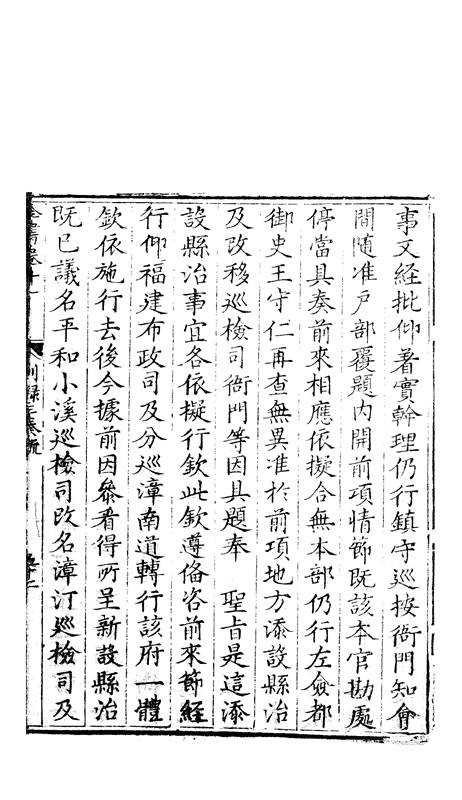 事文經批仰著實幹理仍行鎮守巡按衙門知會
間隨准戶部覆題內開前項情節既該本官勘處
停當具奏前來相應依擬合無本部仍行左僉都
御史王守仁再查無異准於前項地方添設縣治
及改移巡檢司衙門等因具題奉　聖旨是這添
設縣治事宜各依擬行欽此欽遵俻咨前來節經
行仰福建布政司及分巡漳南道轉行該府一體
欽依施行去後今據前因叅看得所呈新設縣治
既已議名平和小溪巡檢司改名漳汀巡檢司及
全書卷十
別録